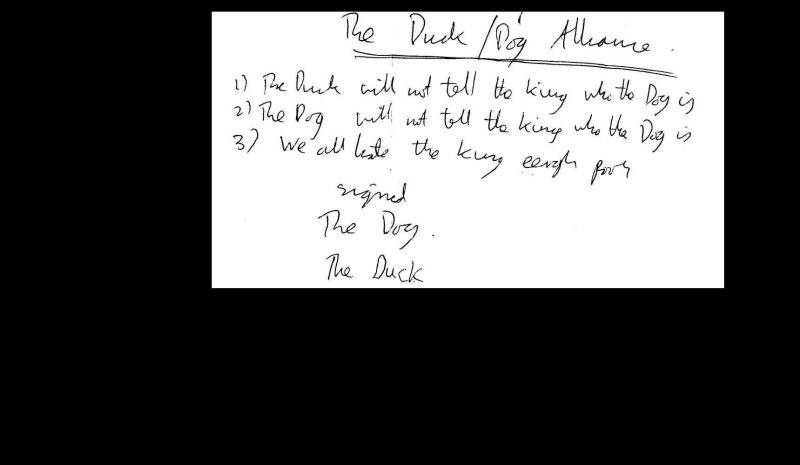 The Duck / Dog Alliance.
1) The Duck will not tell the king who the Dog is
2) The Dog will not tell the king who the Dog is
3) We all hate the king
signed
The Dog.
The Duck